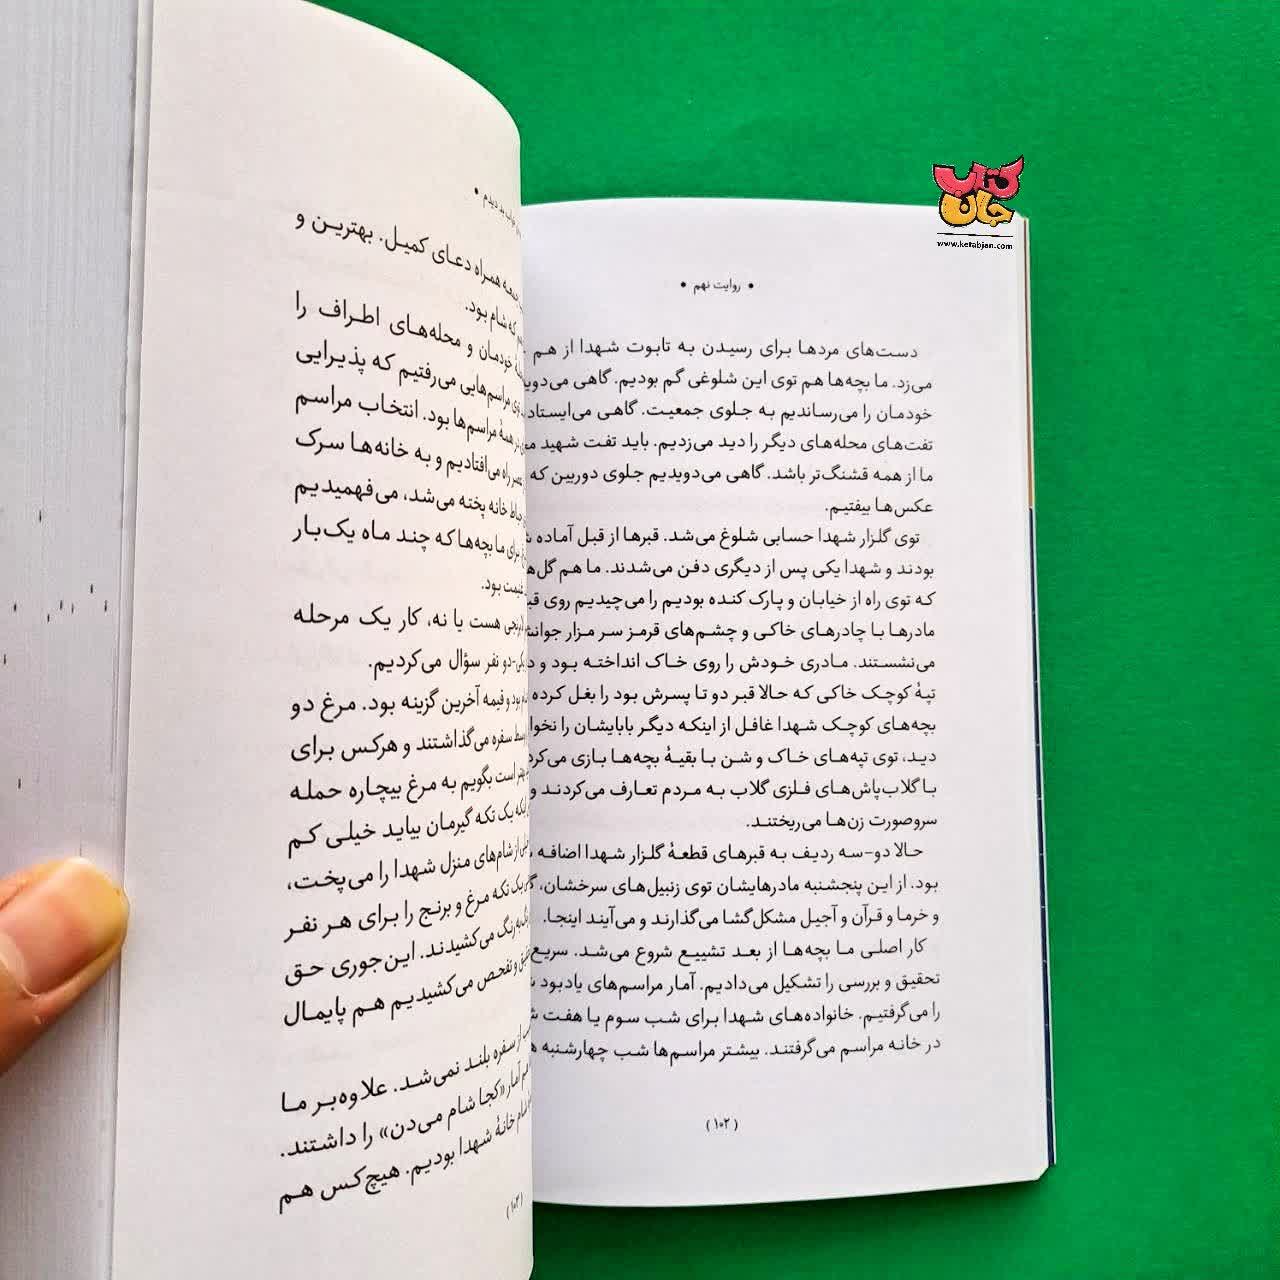 کتاب جان
www.ketabjan.com
• روایت نهم •
دست‌های مردها برای رسیدن به تابوت شهدا از هم
می‌زد. ما بچه‌ها هم توی این شلوغی گم بودیم. گاهی
خودمان را می‌رساندیم به جلوی جمعیت. گاهی
تفت‌های محله‌های دیگر را دید می‌زدیم. باید تفت شهید
ما از همه قشنگ‌تر باشد. گاهی می‌دویدیم جلوی دوربین که
عکس‌ها بیفتیم.
توی گلزار شهدا حسابی شلوغ می‌شد. قبرها از قبل آماده
بودند و شهدا یکی پس از دیگری دفن می‌شدند. ما هم
که توی راه از خیابان و پارک کنده بودیم را می‌چیدیم روی
مادرها با چادرهای خاکی و چشم‌های قرمز سر مزار
می‌نشستند. مادری خودش را روی خاک انداخته بود و
تپهٔ کوچک خاکی که حالا قبر دو تا پسرش بود را بغل کرده
بچه‌های کوچک شهدا غافل از اینکه دیگر بابایشان را
دید، توی تپه‌های خاک و شن با بقیهٔ بچه‌ها بازی
با گلاب‌پاش‌های فلزی گلاب به مردم تعارف می‌کردند و
سروصورت زن‌ها می‌ریختند.
حالا دو-سه ردیف به قبرهای قطعهٔ گلزار شهدا اضافه
بود. از این پنجشنبه مادرهایشان توی زنبیل‌های سرخشان،
و خرما و قرآن و آجیل مشکل‌گشا می‌گذارند و می‌آیند اینجا.
کار اصلی ما بچه‌ها از بعد تشییع شروع می‌شد. سریع
تحقیق و بررسی را تشکیل می‌دادیم. آمار مراسم‌های یادبود
را می‌گرفتیم. خانواده‌های شهدا برای شب سوم یا هفت
در خانه مراسم می‌گرفتند. بیشتر مراسم‌ها شب چهارشنبه
(۱۰۲)
همراه دعای کمیل. بهترین و
که شام بود.
خودمان و محله‌های اطراف را
توی مراسم‌هایی می‌رفتیم که پذیرایی
در همهٔ مراسم‌ها بود. انتخاب مراسم
راه می‌افتادیم و به خانه‌ها سرک
حیاط خانه پخته می‌شد، می‌فهمیدیم
برای ما بچه‌ها که چند ماه یک‌بار
غنیمت بود.
هست یا نه، کار یک مرحله
یکی-دو نفر سؤال می‌کردیم.
بود و قیمه آخرین گزینه بود. مرغ دو
وسط سفره می‌گذاشتند و هرکس برای
بهتر است بگویم به مرغ بیچاره حمله
اینکه یک تکه گیرمان بیاید خیلی کم
از شام‌های منزل شهدا را می‌پخت،
یک تکه مرغ و برنج را برای هر نفر
می‌کشیدند. این‌جوری حق
و تفحص می‌کشیدیم هم پایمال
از سفره بلند نمی‌شد. علاوه‌بر ما
آمار «کجا شام می‌دن» را داشتند.
شام خانهٔ شهدا بودیم. هیچ‌کس هم
(۱۰۳)